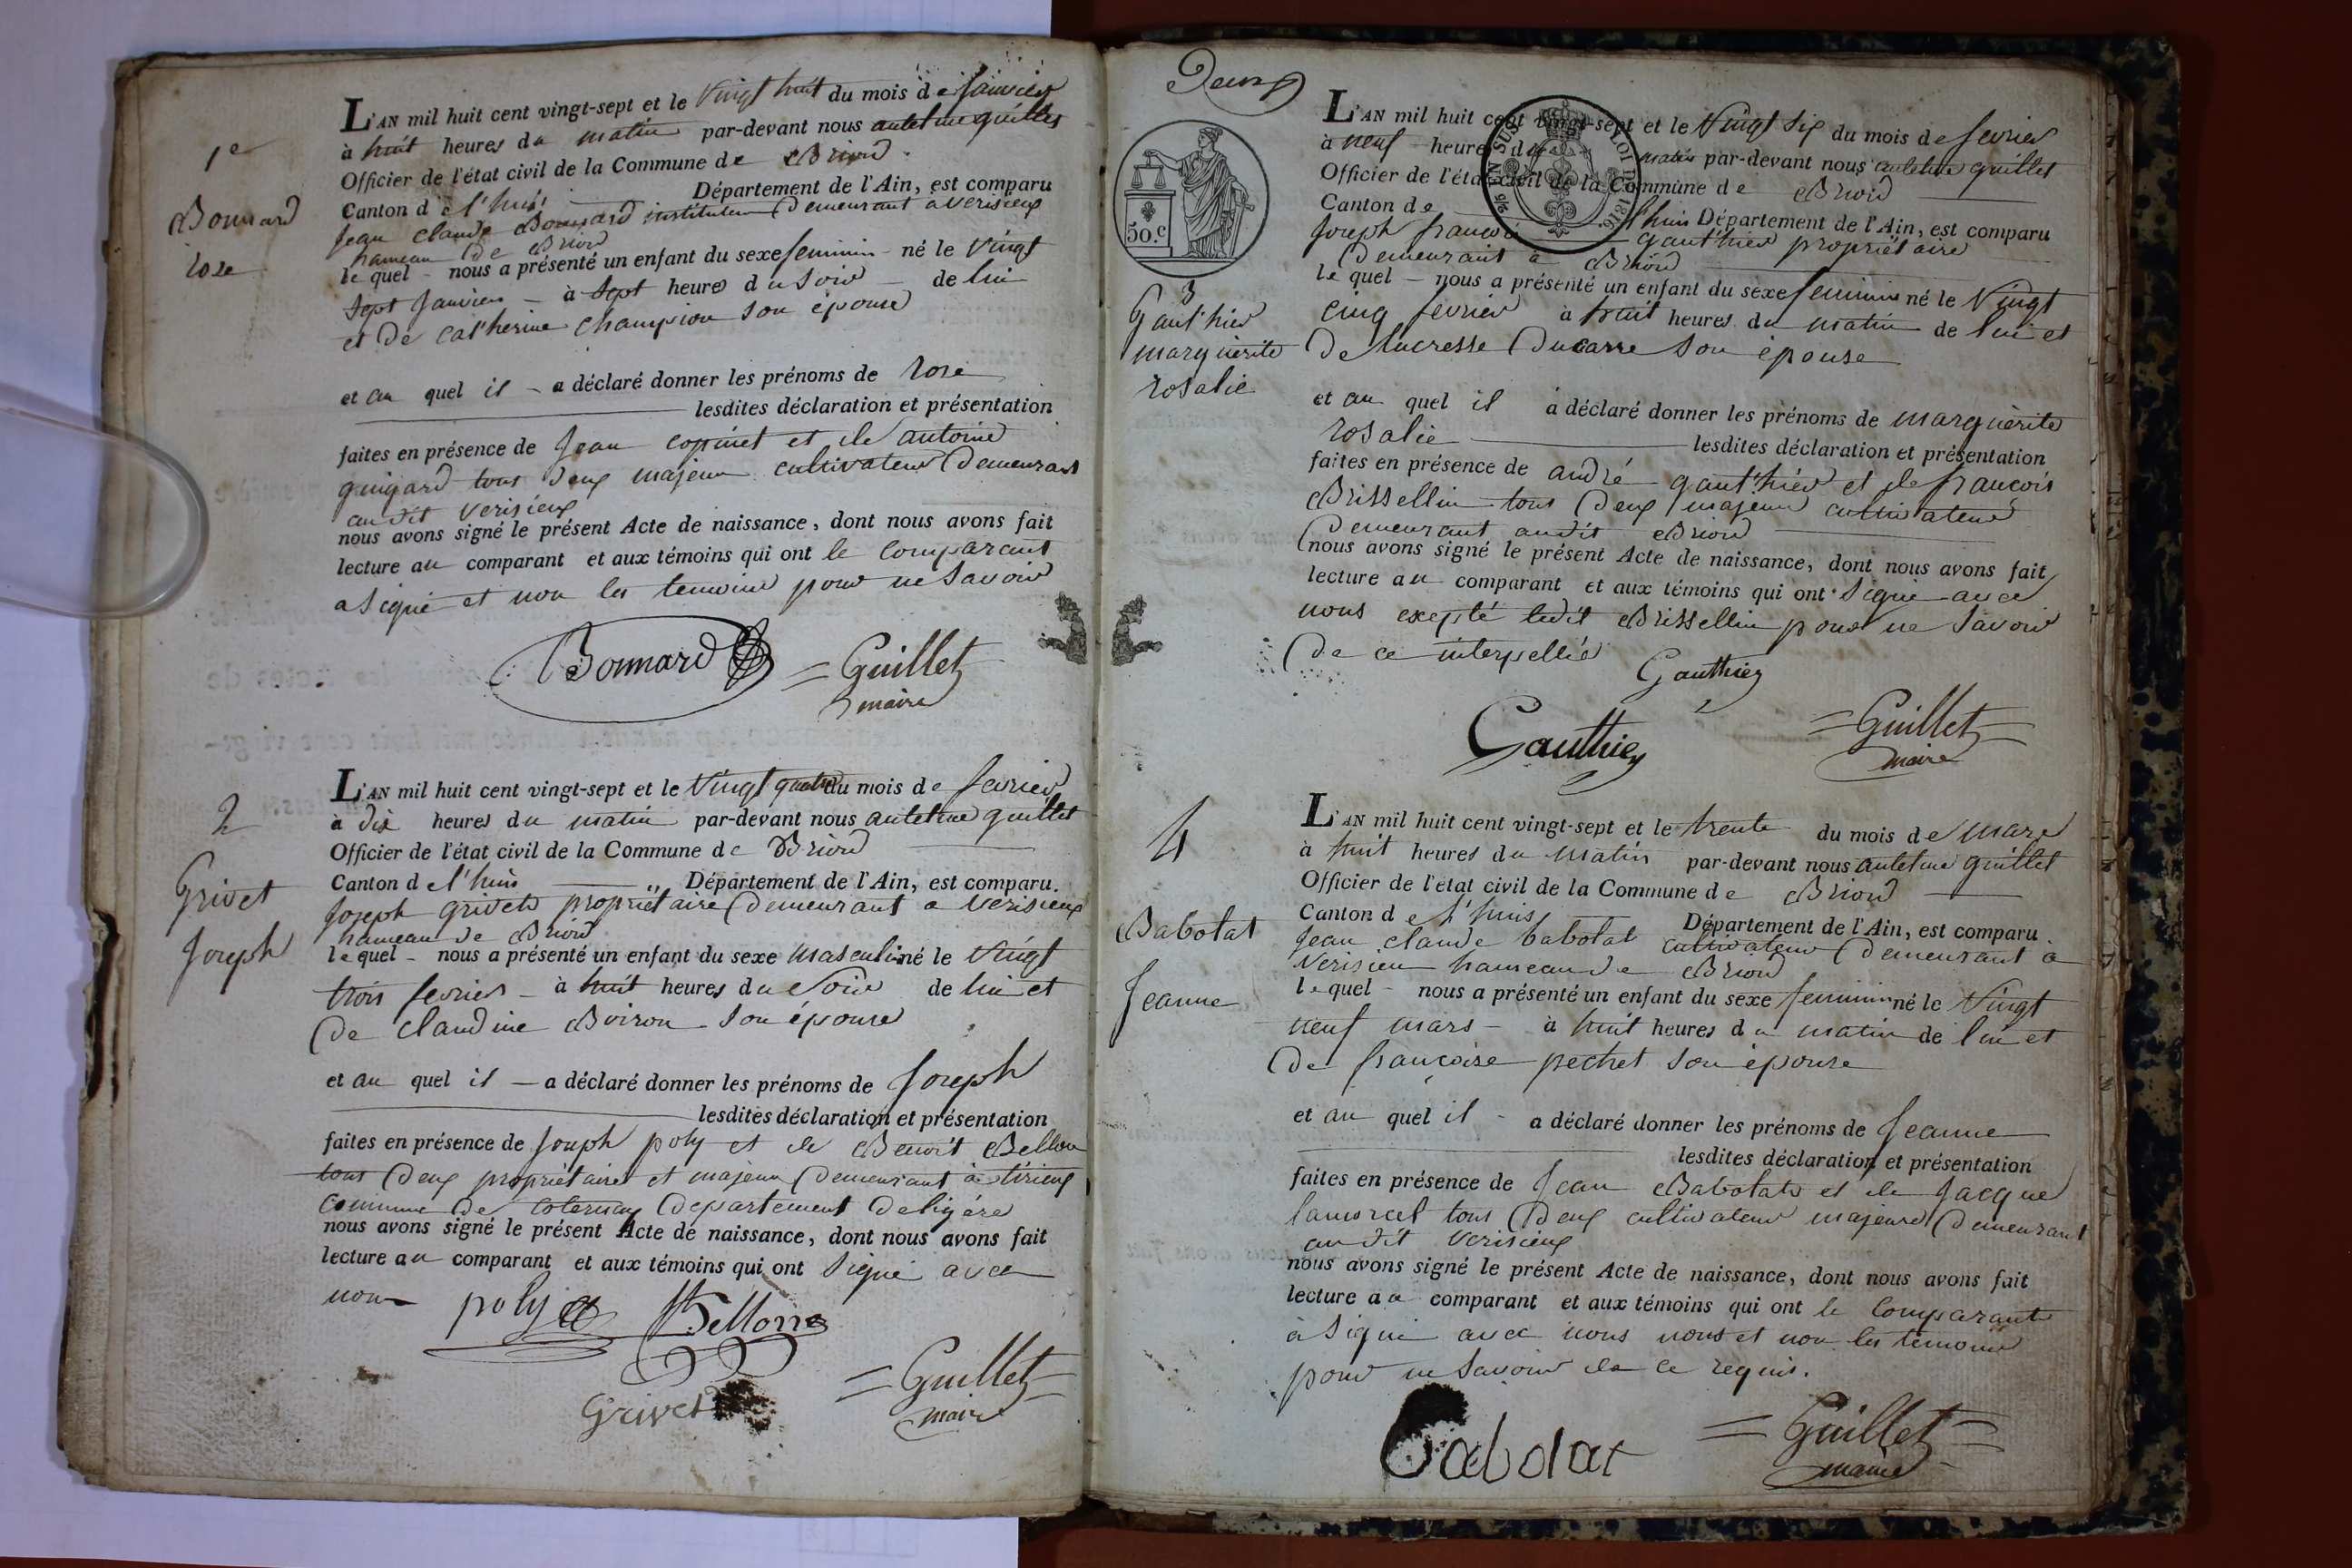 1e
Bonnard
roze
L'AN mil huit cent vingt-sept et le Vingt huit du mois de janvier
à huit heures du matin par-devant nous antelme guillet
Officier de l'état civil de la Commune de Briord.
Canton d l'huis Département de l'Ain, est comparu
jean claude Bonnard instituteur demeurant a verisieux
hameau de Briord
le quel - nous a présenté un enfant du sexe feminin - né le vingt
sept janvier - à sept heures du soir - de lui
et de catherine champion son épouse
et au quel il - a déclaré donner les prénoms de roze
lesdites déclaration et présentation
faites en présence de jean copinet et de antoine
guigard tous deux majeur cultivateur demeurant
au dit verisieux
nous avons signé le présent Acte de naissance, dont nous avons fait
lecture au comparant et aux témoins qui ont le comparant
a signé et non les temoins pour ne savoir
Bonnard = Guillet
maire
2
Grivet
Joseph
L'AN mil huit cent vingt-sept et le Vingt quatre du mois de fevrier
à dix heures du matin par-devant nous antelme guillet
Officier de l'état civil de la Commune de Briord
Canton de l'huis Département de l'Ain, est comparu.
joseph grivet propriétaire demeurant a verisieux
hameau de Briord
le quel - nous a présenté un enfant du sexe masculin né le vingt
trois fevrier - à huit heures du soir de lui et
de claudine Boiron son épouse
et au quel il - a déclaré donner les prénoms de joseph
lesdites déclaration et présentation
faites en présence de joseph poly et de Benoit Bellon
tous deux propriétaire et majeur demeurant à
commune de departement de ligére
nous avons signé le présent Acte de naissance, dont nous avons fait
lecture au comparant et aux témoins qui ont signé avec
nous poly Bellon
Grivet = Guillet =
maire
Deux
50.c
TIMBRE
LOI DE 1816
3
Gauthier
marguerite
rosalie
L'AN mil huit cent vingt-sept et le Vingt six du mois de fevrier
à neuf heures du matin par-devant nous antelme guillet
Officier de l'état civil de la Commune de Briord
Canton de l'huis Département de l'Ain, est comparu
joseph francois gauthier propriétaire
demeurant a Briord
le quel - nous a présenté un enfant du sexe feminin né le Vingt
cinq fevrier à huit heures du matin de lui et
de lucresse Ducarre son épouse
et au quel il a déclaré donner les prénoms de marguerite
rosalie lesdites déclaration et présentation
faites en présence de andré gauthier et de francois
Brissellin tous deux majeur cultivateur
demeurant audit Briord
nous avons signé le présent Acte de naissance, dont nous avons fait
lecture au comparant et aux témoins qui ont signé avec
nous exepté ledit Brissellin pour ne savoir
de ce interpellié
Gauthier
Gauthier = Guillet =
maire
4
Babolat
Jeanne
L'AN mil huit cent vingt-sept et le trente du mois de mars
à huit heures du matin par-devant nous antelme guillet
Officier de l'état civil de la Commune de Briord
Canton de l'huis Département de l'Ain, est comparu
jean claude babolat cultivateur demeurant à
verisieu hameau de Briord
le quel - nous a présenté un enfant du sexe feminin né le Vingt
neuf mars - à huit heures du matin de lui et
de francoise pechet son épouse
et au quel il - a déclaré donner les prénoms de jeanne
lesdites déclaration et présentation
faites en présence de jean Babolat et de jacque
lamorcet tous deux cultivateur majeure demeurant
au dit verisieux
nous avons signé le présent Acte de naissance, dont nous avons fait
lecture au comparant et aux témoins qui ont le comparant
à signé avec nous nous et non les temoins
pour ne savoir de ce requis.
Babolat = Guillet =
maire